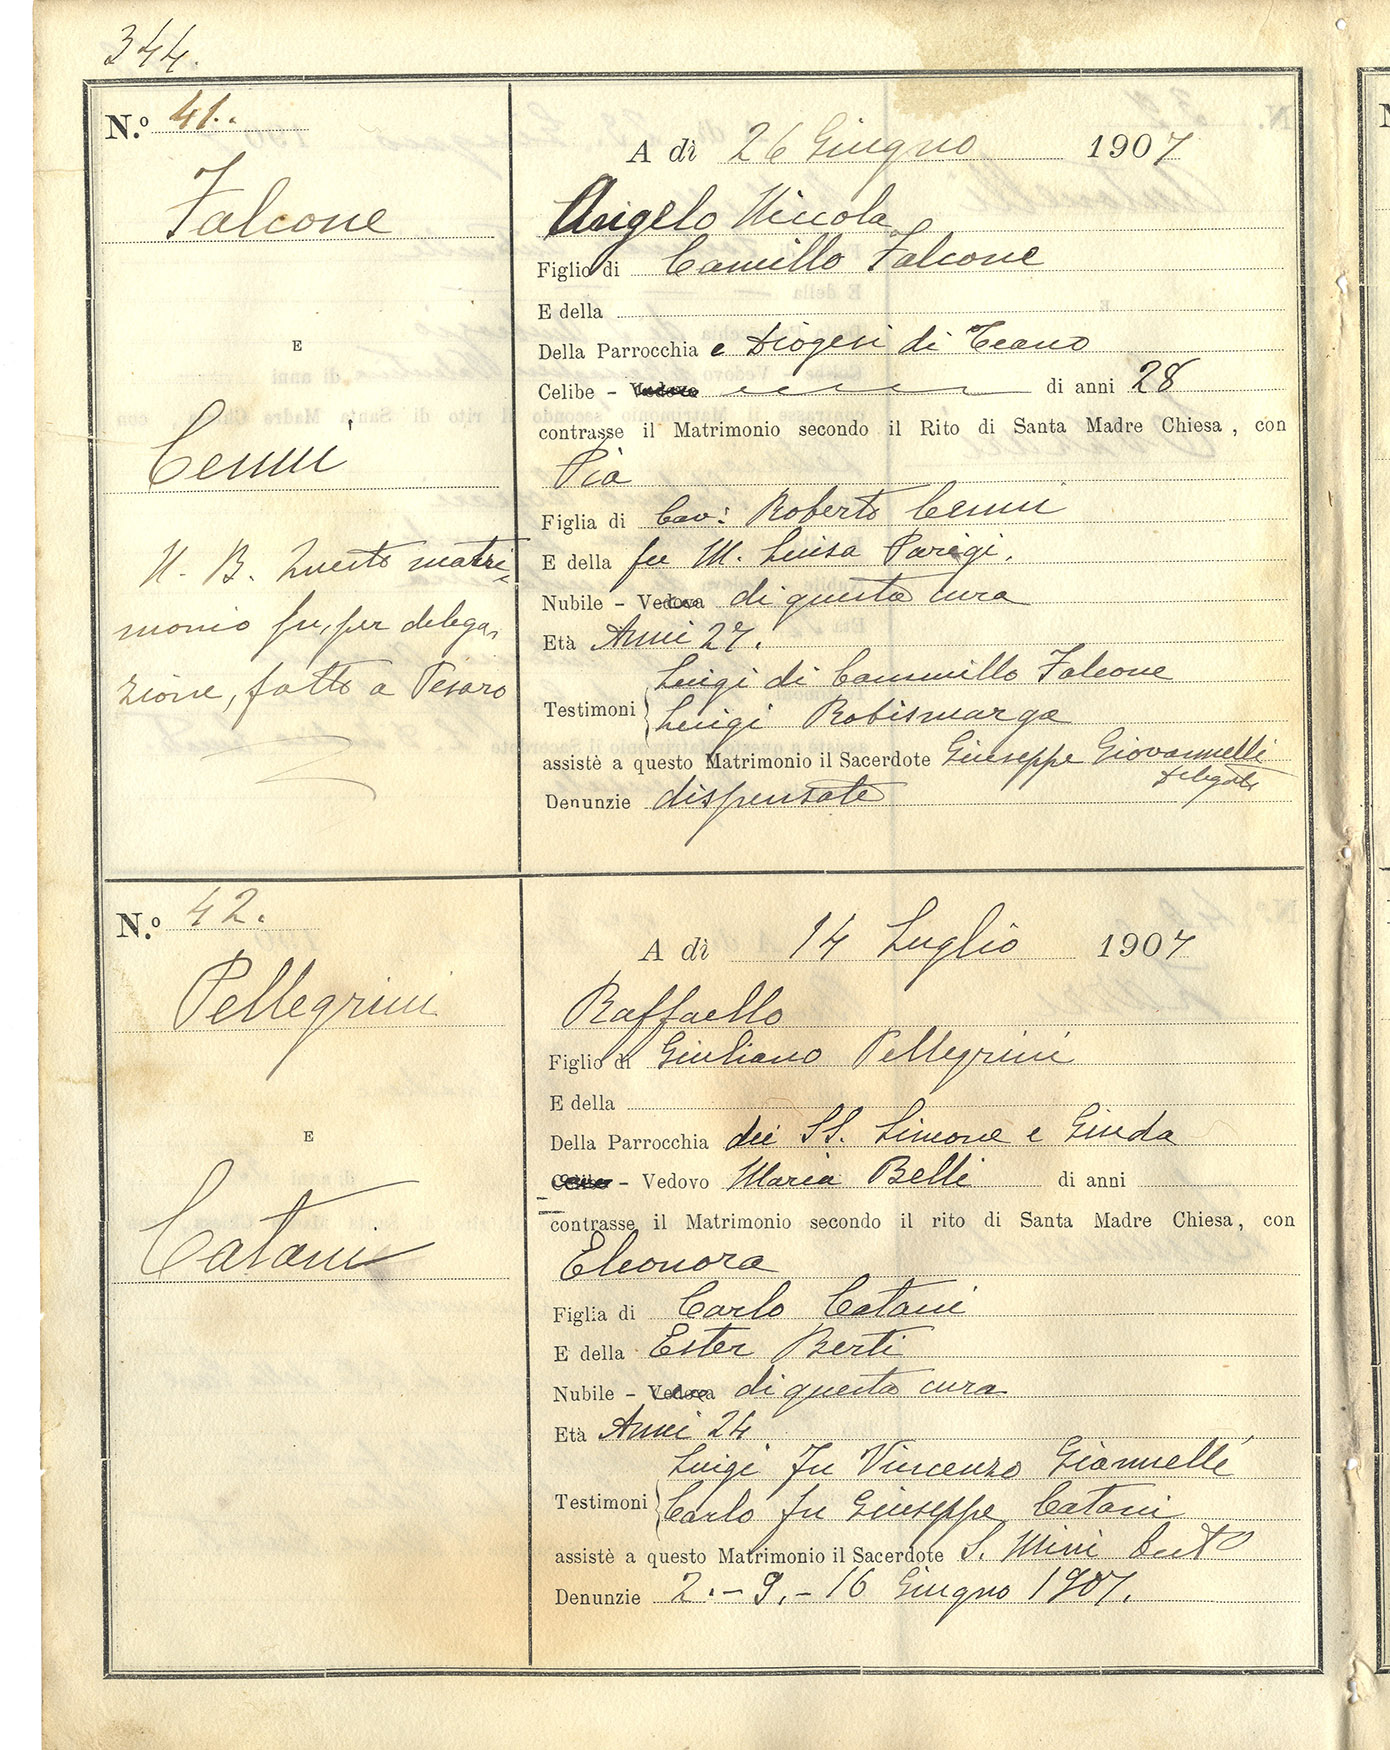 344.
N.º 41.
Falcone
E
Cenni
N. B. Questo matri=
monio fu, per delega,
zione, fatto a Pesaro
A dì 26 Giugno 1907
Angelo Niccola
Figlio di Camillo Falcone
E della
Della Parrocchia e Diogesi di Teano
Celibe - Vedovo di anni 28
contrasse il Matrimonio secondo il Rito di Santa Madre Chiesa, con
Pia
Figlia di Cav: Roberto Cenni
E della fu M. Luisa Parigi.
Nubile - Vedova di questa cura
Età Anni 27.
Luigi di Cammillo Falcone
Testimoni
Luigi
assistè a questo Matrimonio il Sacerdote Giuseppe Giovannelli
Delegato
Denunzie dispensate
N.º 42.
Pellegrini
E
Catani
A dì 14 Luglio 1907
Raffaello
Figlio di Giuliano Pellegrini
E della
Della Parrocchia dei SS. Simone e Giuda
Celibe - Vedovo Maria Belli di anni
contrasse il Matrimonio secondo il rito di Santa Madre Chiesa, con
Eleonora
Figlia di Carlo Catani
E della Ester Berti
Nubile - Vedova di questa cura
Età Anni 24
Luigi fu Vincenzo Giannelli
Testimoni
Carlo fu Giuseppe Catani
assistè a questo Matrimonio il Sacerdote S. Mini
Denunzie 2.-9.-16 Giugno 1907.